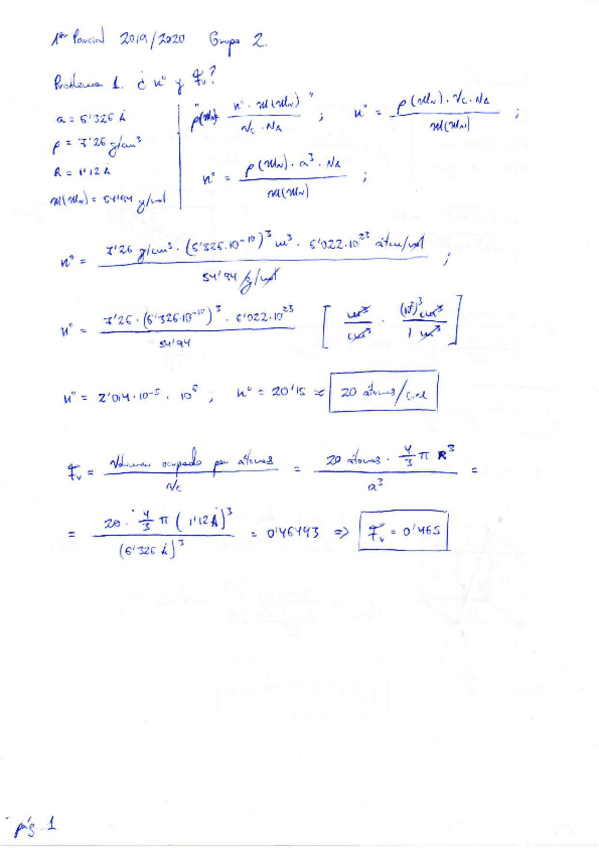 1er Parcial 2019/2020 Grupo 2.
Problema 1. ¿ nº y Fv?
a = 6'326 Å
ρ = 7'26 g/cm³
R = 1'12 Å
M(Mn) = 54'94 g/mol
"ρ(Mn) = nº · M(Mn) / Vc · NA" ; nº = ρ(Mn) · Vc · NA / M(Mn) ;
nº = ρ(Mn) · a³ · NA / M(Mn) ;
nº = 7'26 g/cm³ · (6'326·10⁻¹⁰)³ m³ · 6'022·10²³ átom/mol / 54'94 g/mol ;
nº = 7'26 · (6'326·10⁻¹⁰)³ · 6'022·10²³ / 54'94 [ m³/cm³ · (10²)³ cm³ / 1 m³ ]
nº = 2'014·10⁻⁵ · 10⁶ ; nº = 20'15 ≈ 20 átomos/c.u
Fv = Volumen ocupado por átomos / Vc = 20 átomos · 4/3 π R³ / a³ =
= 20 · 4/3 π (1'12 Å)³ / (6'326 Å)³ = 0'46493 => Fv = 0'465
pág 1